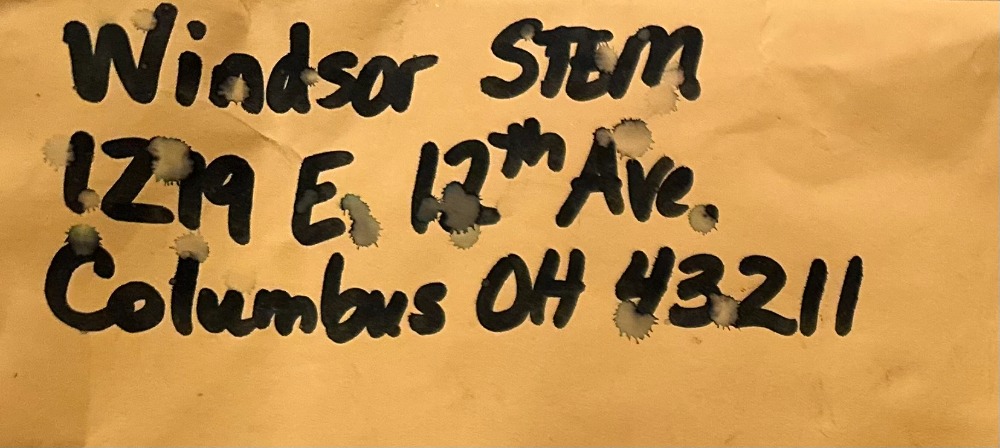 Windsor STEM
1219 E. 12th Ave.
Columbus OH 43211